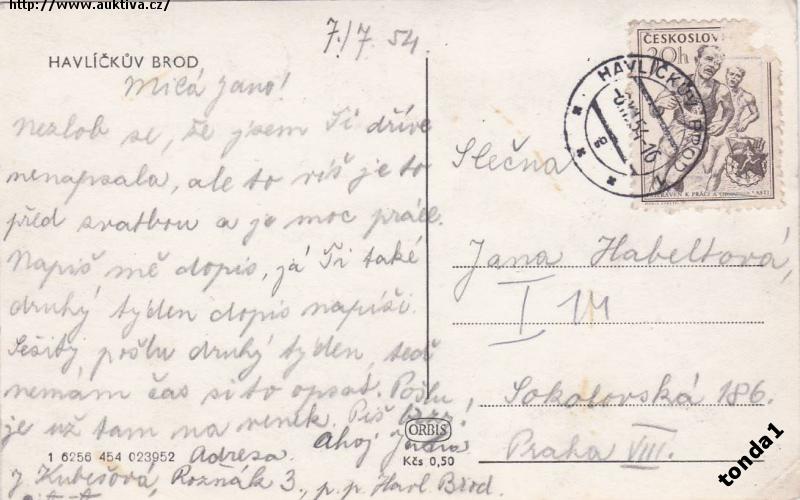 http://www.auktiva.cz/
7./7. 54.
HAVLÍČKŮV BROD
Milá Jano!
Nezlob se, že jsem Ti dříve
nenapsala, ale to víš je to
před svatbou a je moc práce.
Napiš mě dopis, já Ti také
druhý týden dopis napíši.
Sešity pošlu druhý týden, teď
nemám čas si to opsat. Pošlu
je už tam na venek. Piš brzy!
Ahoj Jana
Adresa.
J. Kubešová, Rozňák 3, p. p. Havl. Brod.
1 6256 454 023952
ORBIS
Kčs 0,50
ČESKOSLOV
20h
HAVLÍČKŮV BROD
Slečna
Jana Habeltová,
I 14
Sokolovská 186.
Praha VIII.
tonda1